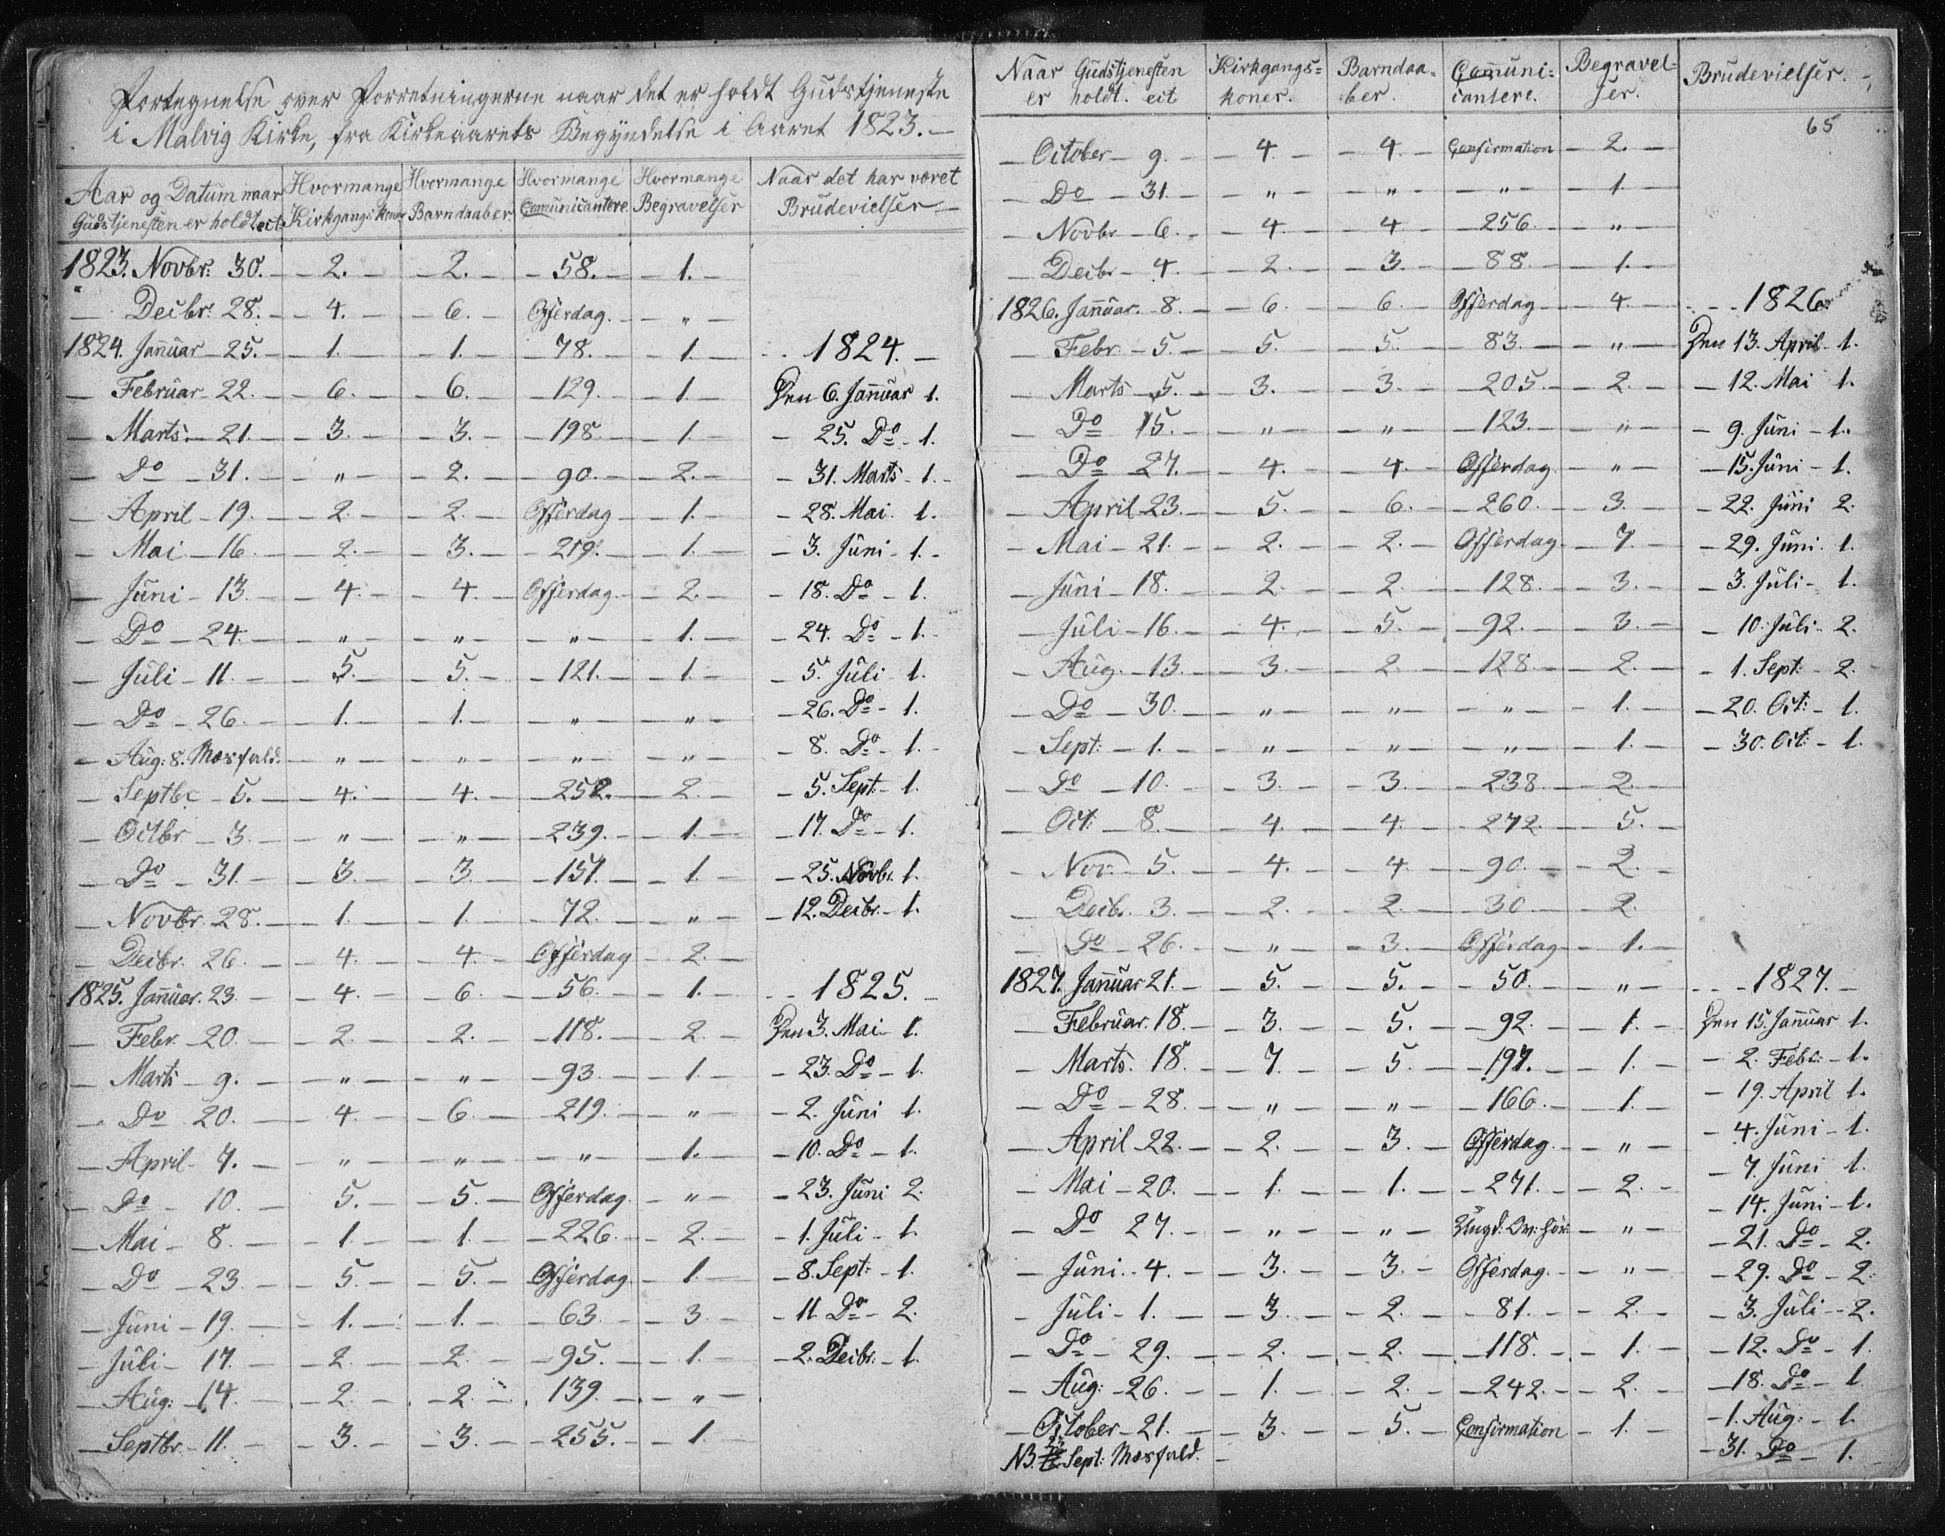 Fortegnelse over Forretningerne naar det er holdt Gudstjeneste
i Malvig Kirke, fra Kirkeaarets Begyndelse i Aaret 1823.
Aar og Datum naar Gudstjenesten er holdt etc | Hvormange Kirkgangskoner | Hvormange Barndaaber | Hvormange Comunicantere | Hvormange Begravelser | Naar det har været Brudevielser
1823. Novbr: 30. – 2. – 2. – 58. – 1. –
– Decbr: 28. – 4. – 6. – Offerdag. – „ –
1824. Januar 25. – 1. – 1. – 78. – 1. – 1824. –
– Februar 22. – 6. – 6. – 129. – 1. Den 6. Januar 1.
– Marts. – 21. – 3. – 3. – 198. – 1. – 25. Do – 1.
– Do – 31. – „ – 2. – 90. – 2. – 31. Marts – 1. –
– April – 19. – 2. – 2. – Offerdag – 1. – 28. Mai. 1.
– Mai – 16. – 2. – 3. – 219. – 1. – 3. Juni – 1. –
– Juni – 13. – 4. – 4. – Offerdag. – 2. – 18. Do – 1.
– Do – 24. – „ – „ – „ – 1. – 24. Do – 1. –
– Juli – 11. – 5. – 5. – 121. – 1. – 5. Juli 1.
– Do – 26. – 1. – 1. – „ – „ – 26. Do – 1.
– Aug: 8. Messfald. – „ – „ – „ – „ – 8. Do – 1. –
– Septbr – 5. – 4. – 4. – 252. – 2. – 5. Sept – 1.
– Octbr – 3. – „ – „ – 239. – 1. – 17. Do – 1.
– Do – 31. – 3. – 3. – 151. – 1. – 25. Novbr. 1.
– Novbr. 28. – 1. – 1. – 72. – „ – 12. Decbr. – 1.
– Decbr. 26. – 4. – 4. – Offerdag – 2. –
1825. Januar. 23. – 4. – 6. – 56. – 1. – 1825. –
– Febr. – 20. – 2. – 2. – 118. – 2. – Den 3. Mai – 1.
– Marts – 9. – „ – „ – 93. – 1. – 23. Do – 1.
– Do – 20. – 4. – 6. – 219. – „ – 2. Juni 1.
– April – 7. – „ – „ – „ – 1. – 10. Do – 1.
– Do – 10. – 5. – 5. – Offerdag. – „ – 23. Juni 2.
– Mai – 8. – 1. – 1. – 226. – 2. – 1. Juli – 1.
– Do – 23. – 5. – 5. – Offerdag. – 1. – 8. Sept: – 1.
– Juni – 19. – 1. – 1. – 63. – 3. – 11. Do – 2.
– Juli – 17. – 2. – 2. – 95. – 1. – 2. Decbr. – 1.
– Aug: – 14. – 2. – 2. – 139. – „ –
– Septbr. – 11. – 3. – 3. – 255. – 1. –
Naar Gudstjenesten er holdt. etc | Kirkgangskoner. | Barndaaber. | Comunicantere. | Begravelser. | Brudevielser.
65
– October – 9. – 4. – 4. – Confirmation – 2. –
– Do – 31. – „ – „ – „ – 1. –
– Novbr – 6. – 4. – 4. – 256. – „ –
– Decbr – 4. – 2. – 3. – 88. – 1. –
1826. Januar. 8. – 6. – 6. – Offerdag – 4. – 1826.
– Febr. – 5. – 5. – 5. – 83. – „ – Den 13. April – 1.
– Marts – 5. – 3. – 3. – 205. – 2. – 12. Mai 1.
– Do 15. – „ – „ – 123. – „ – 9. Juni – 1.
– Do – 27. – 4. – 4. – Offerdag. – „ – 15. Juni – 1.
– April – 23. – 5. – 6. – 260. – 3. – 22. Juni 2.
– Mai – 21. – 2. – 2. – Offerdag – 7. – 29. Juni. 1.
– Juni – 18. – 2. – 2. – 128. – 3. – 3. Juli – 1.
– Juli – 16. – 4. – 5. – 92. – 3. – 10. Juli – 2.
– Aug. – 13. – 3. – 2. – 128. – 2. – 1. Sept. – 2.
– Do – 30. – „ – „ – „ – 1. – 20. Oct: – 1.
– Sept: – 1. – „ – „ – „ – 1. – 30. Oct: – 1.
– Do – 10. – 3. – 3. – 238. – 2. –
– Oct: – 8. – 4. – 4. – 272. – 5. –
– Nov: – 5. – 4. – 4. – 90. – 2. –
– Decbr. 3. – 2. – 2. – 30. – 2.
– Do – 26. – „ – 3. – Offerdag – 1. –
1827. Januar 21. – 5. – 5. – 50. – „ – 1827. –
– Februar. 18. – 3. – 5. – 92. – 1. – Den 15. Januar 1.
– Marts. 18. – 7. – 5. – 197. – 1. – 2. Febr. – 1.
– Do – 28. – „ – „ – 166. – 1. – 19. April 1.
– April – 22. – 2. – 3. – Offerdag. – „ – 4. Juni – 1.
– Mai – 20. – 1. – 1. – 271. – 2. – 7. Juni 1.
– 14. Juni – 1.
– Do – 27. – „ – „ – Ungd: Ov: hör: – „ – 21. Do – 2.
– Juni. – 4. – 3. – 3. – Offerdag. – „ – 29. Do – 2.
– Juli – 1. – 3. – 2. – 81. – 2. – 3. Juli – 2.
– Do – 29. – 2. – 2. – 118. – 1. – 12. Do – 1.
– Aug: – 26. – 1. – 2. – 242. – 2. – 18. Do – 1
– October – 21. – 3. – 5. – Confirmation – 1. – 1. Aug: – 1.
NB. 23 Sept: Messfald. – 31. Do – 1.